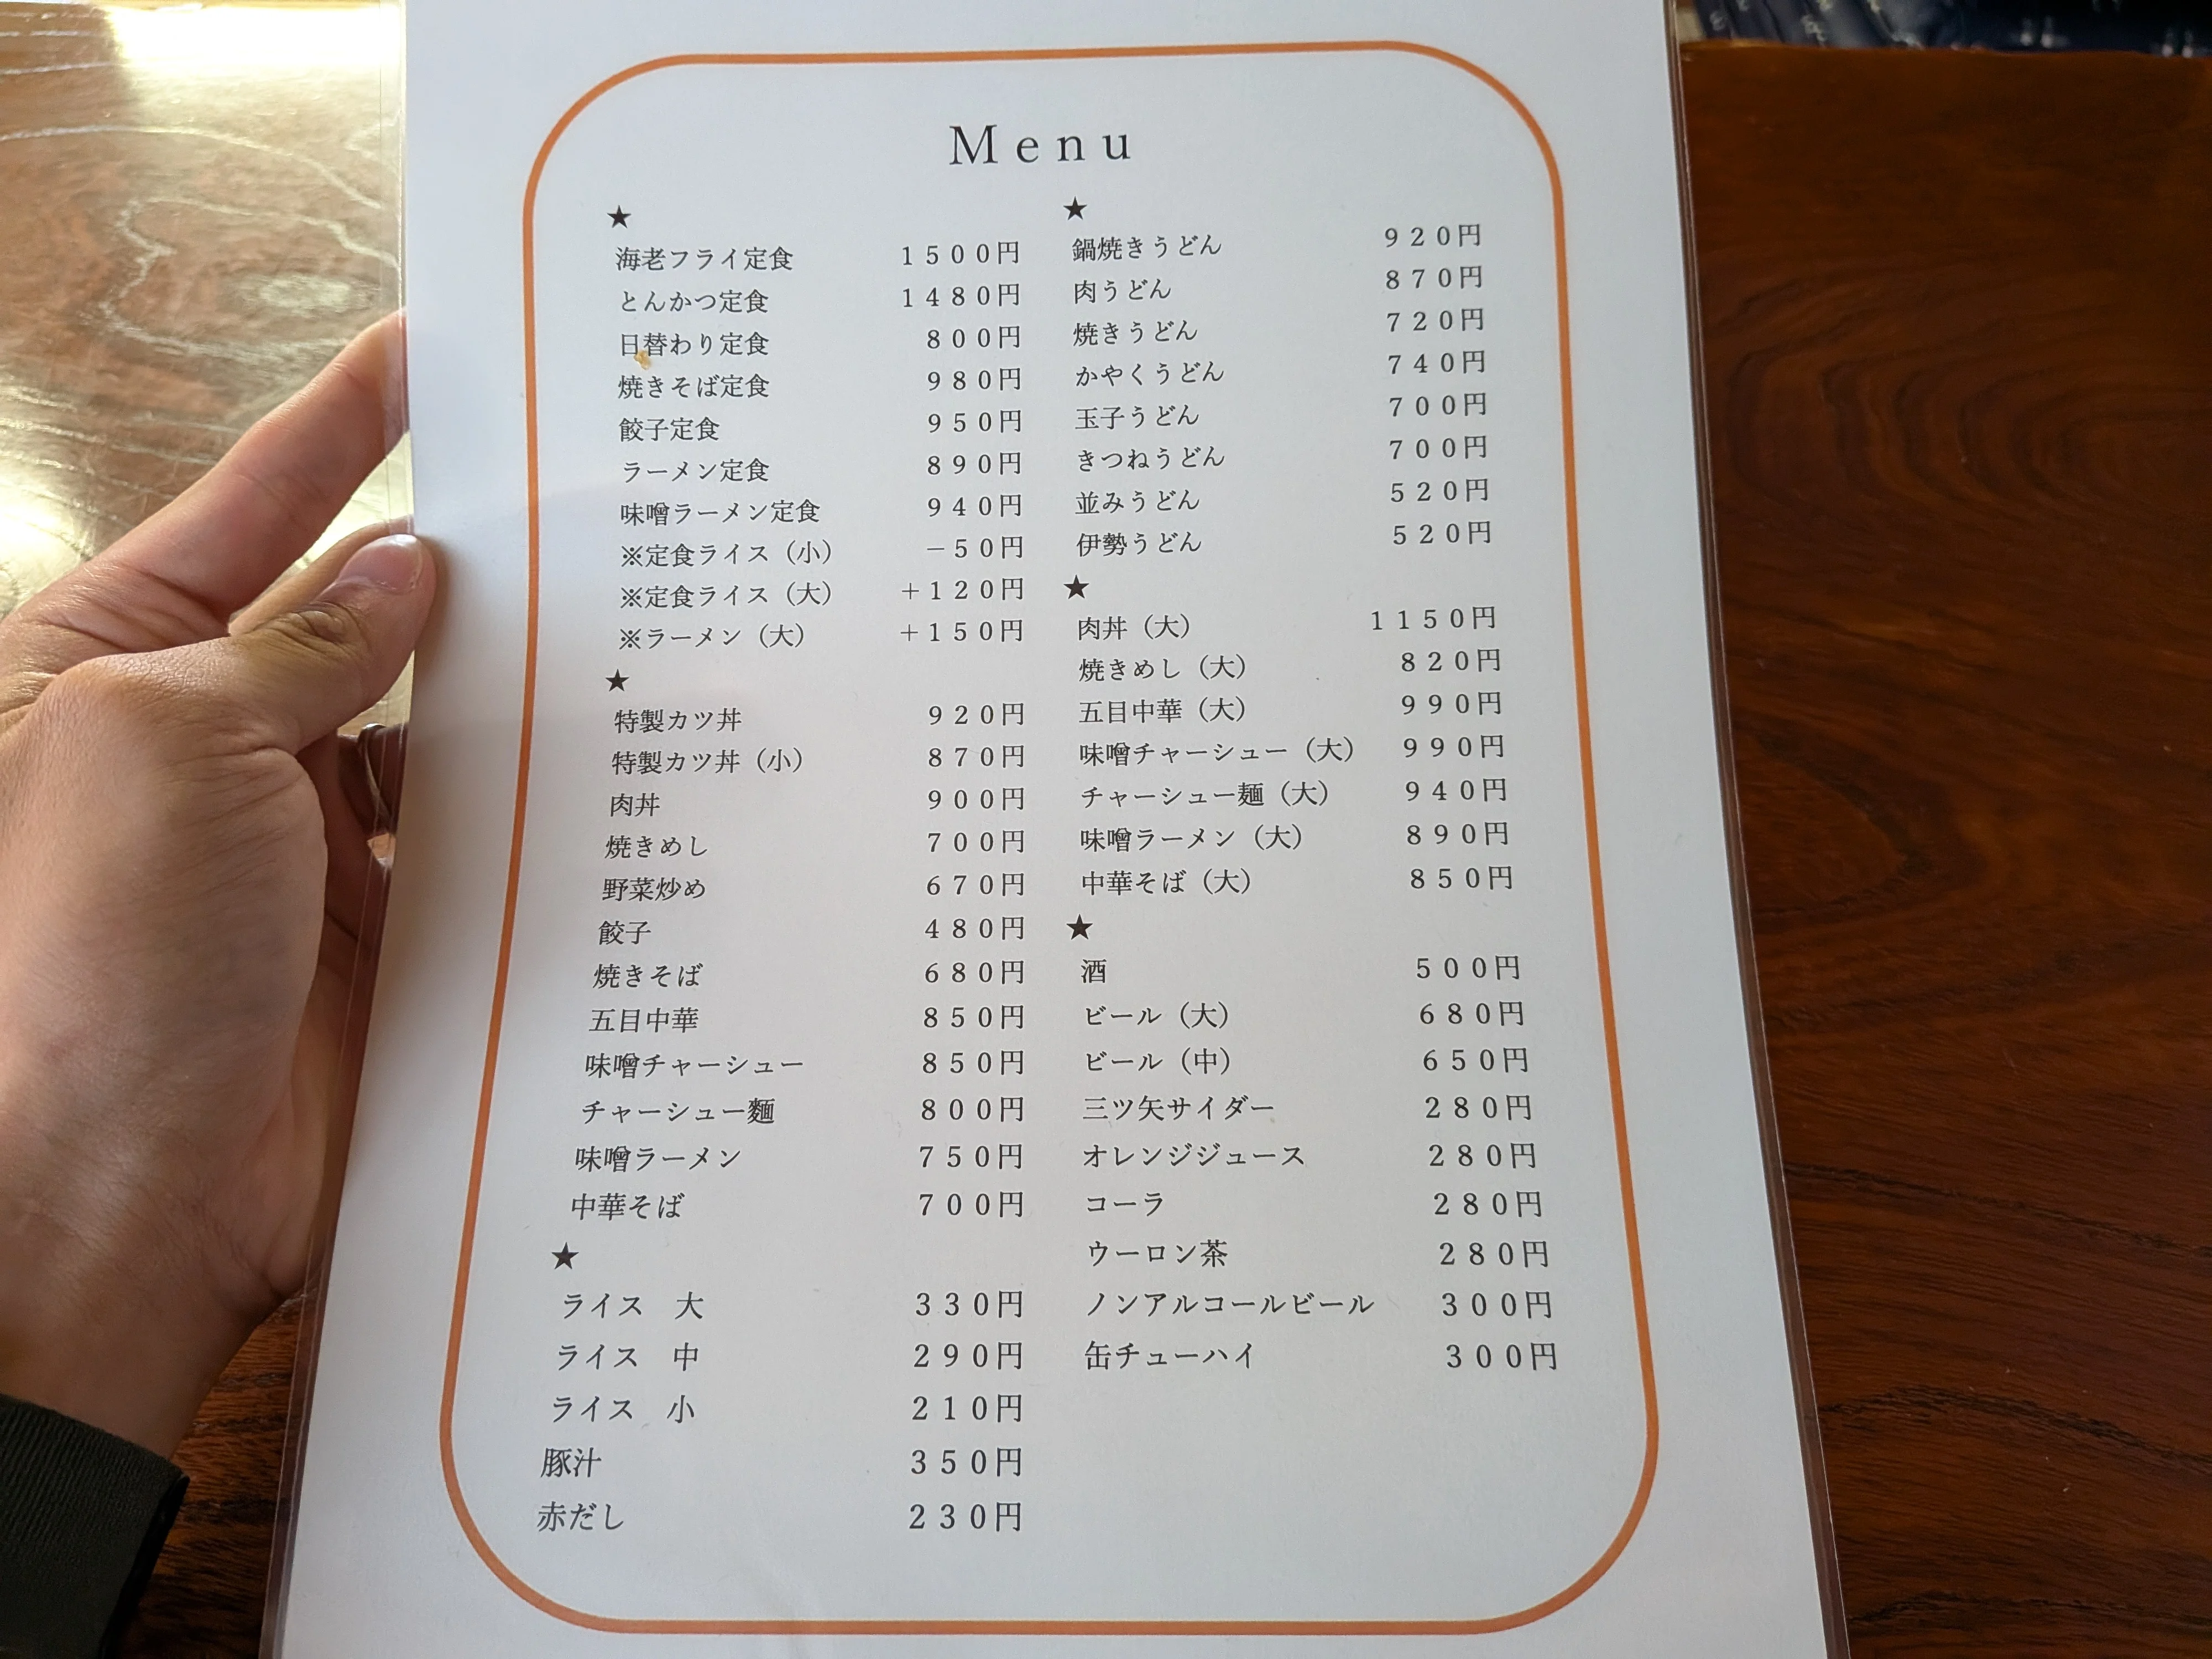 Menu
★
海老フライ定食 1500円
とんかつ定食 1480円
日替わり定食 800円
焼きそば定食 980円
餃子定食 950円
ラーメン定食 890円
味噌ラーメン定食 940円
※定食ライス（小） −50円
※定食ライス（大） +120円
※ラーメン（大） +150円
★
特製カツ丼 920円
特製カツ丼（小） 870円
肉丼 900円
焼きめし 700円
野菜炒め 670円
餃子 480円
焼きそば 680円
五目中華 850円
味噌チャーシュー 850円
チャーシュー麺 800円
味噌ラーメン 750円
中華そば 700円
★
ライス 大 330円
ライス 中 290円
ライス 小 210円
豚汁 350円
赤だし 230円
★
鍋焼きうどん 920円
肉うどん 870円
焼きうどん 720円
かやくうどん 740円
玉子うどん 700円
きつねうどん 700円
並みうどん 520円
伊勢うどん 520円
★
肉丼（大） 1150円
焼きめし（大） 820円
五目中華（大） 990円
味噌チャーシュー（大） 990円
チャーシュー麺（大） 940円
味噌ラーメン（大） 890円
中華そば（大） 850円
★
酒 500円
ビール（大） 680円
ビール（中） 650円
三ツ矢サイダー 280円
オレンジジュース 280円
コーラ 280円
ウーロン茶 280円
ノンアルコールビール 300円
缶チューハイ 300円